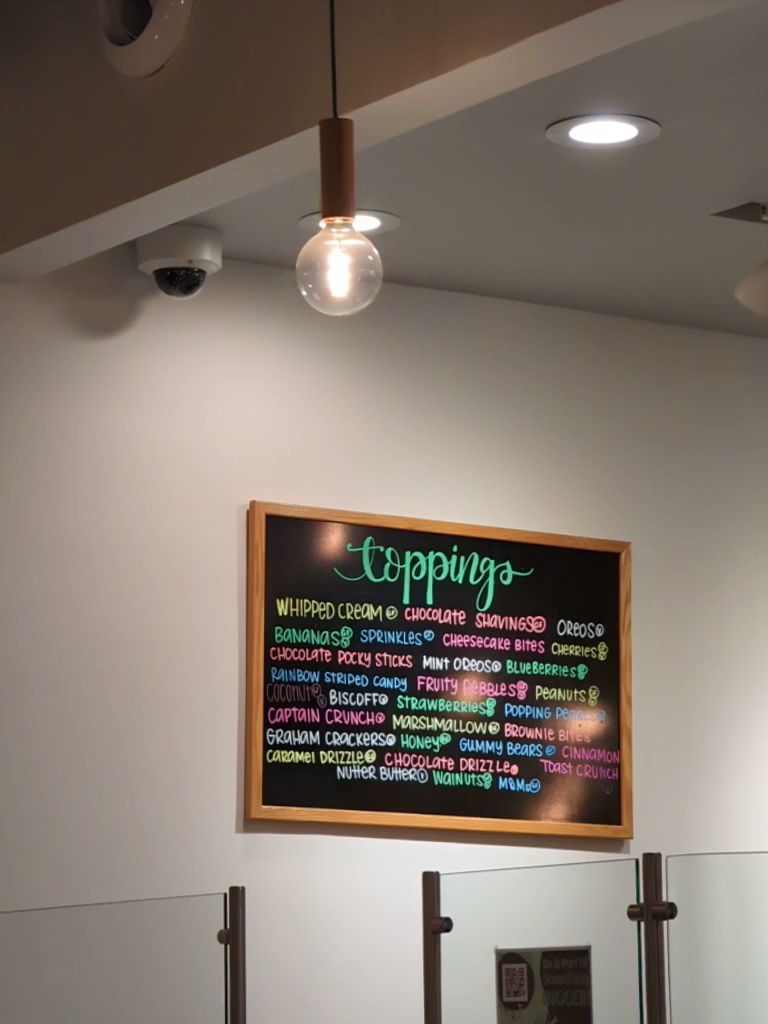 toppings
WHIPPED CREAM GF CHOCOLATE SHAVINGS GF OREOS
BANANAS SPRINKLES CHEESECAKE BITES CHERRIES
CHOCOLATE POCKY STICKS MINT OREOS BLUEBERRIES
RAINBOW STRIPED CANDY FRUITY PEBBLES PEANUTS
COCONUT BISCOFF STRAWBERRIES POPPING PEARLS
CAPTAIN CRUNCH MARSHMALLOW BROWNIE BITES
GRAHAM CRACKERS HONEY GUMMY BEARS CINNAMON
CARAMEL DRIZZLE CHOCOLATE DRIZZLE TOAST CRUNCH
NUTTER BUTTER WALNUTS M&Ms
Be A Part Of
Something
BIGGER!